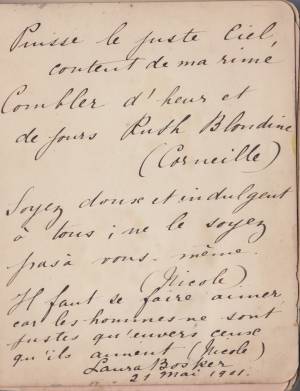 Puisse le juste Ciel,
content de ma rime
Combler d'heur et
de jours Ruth Blondine
(Corneille)
Soyez douce et indulgent
à tous ; ne le soyez
pas à vous-même.
(Nicole)
Il faut se faire aimer,
car les hommes ne sont
justes qu'envers ceux
qu'ils aiment (Nicole)
Laura
21 Mai 1901.